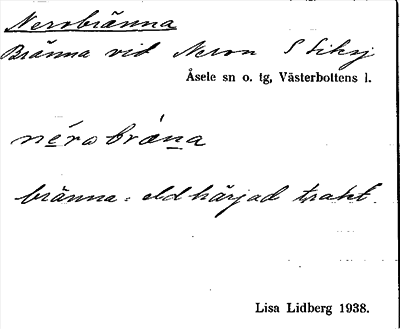 Nerobränna
Bränna vid Neron S
Åsele sn o. tg, Västerbottens l.
néro bräna
bränna = eldhärjad trakt.
Lisa Lidberg 1938.